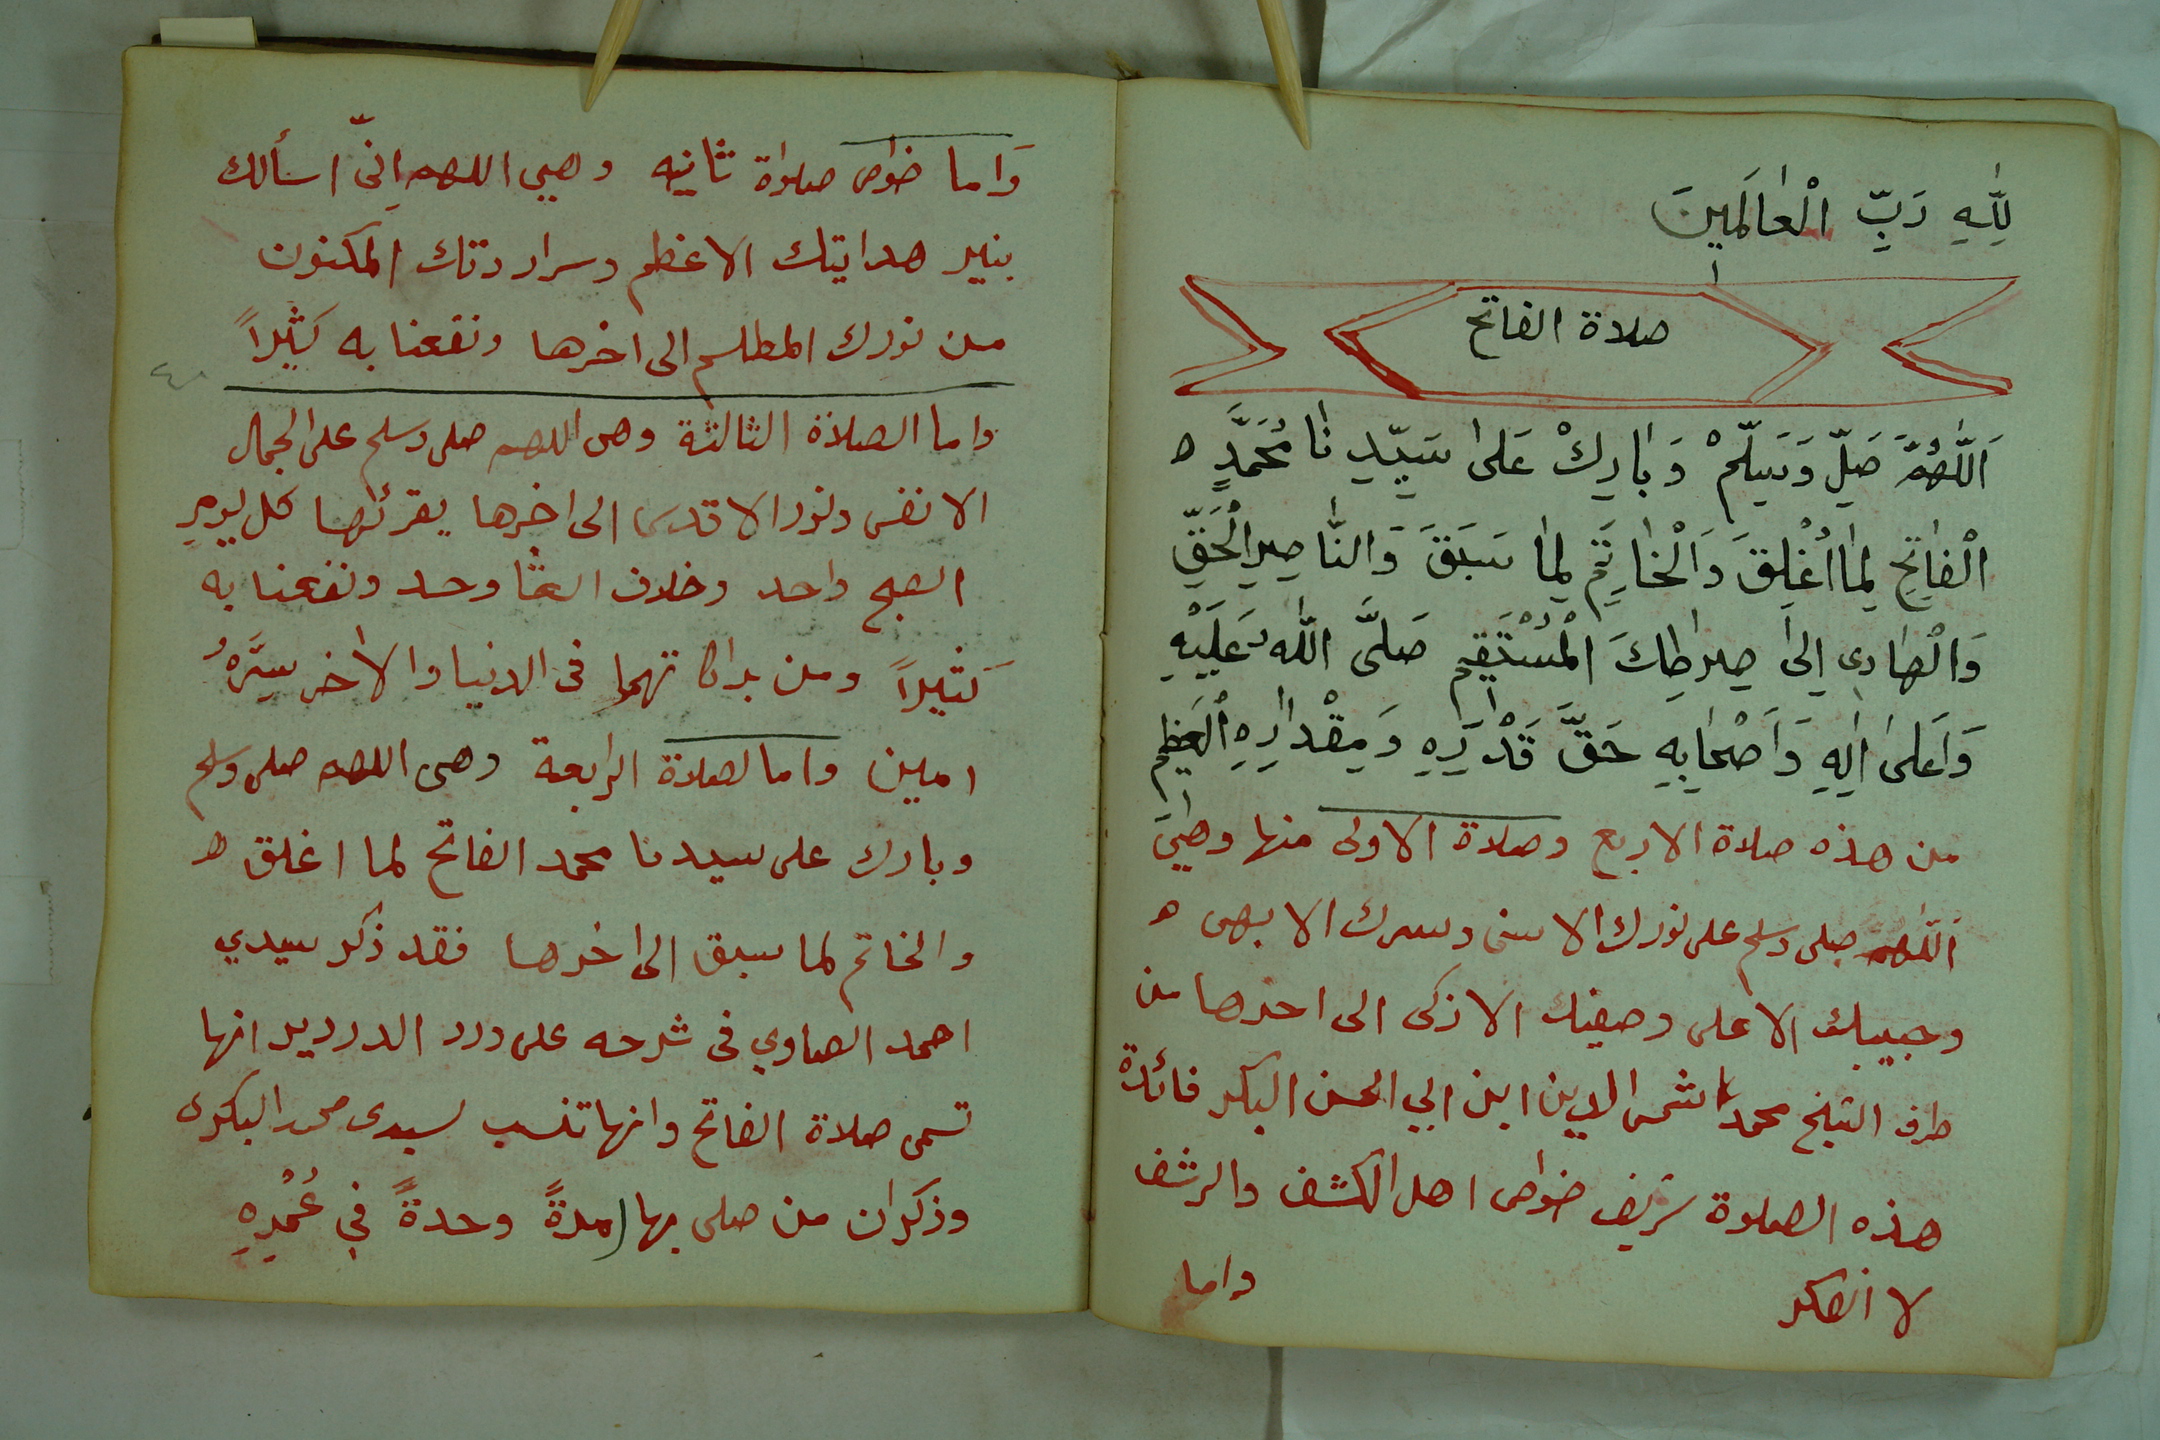 لِلّٰهِ رَبِّ الْعٰالَمِينَ
صلاة الفاتح
اَللّٰهُمَّ صَلِّ وَسَلِّمْ وَبٰارِكْ عَلٰى سَيِّدِنٰا مُحَمَّدٍ ه
الْفٰاتِحِ لِمٰا اُغْلِقَ وَالْخٰاتِمِ لِمٰا سَبَقَ وَالنّٰاصِرِ الْحَقِّ
وَالْهٰادِي اِلىٰ صِرٰاطِكَ الْمُسْتَقِيمِ صَلَّى اللّٰهُ عَلَيْهِ
وَاَعَلىٰ اٰلِهِ وَاَصْحٰابِهِ حَقَّ قَدْرِهِ وَمِقْدٰارِهِ الْعَظِيمِ
من هذه صلاة الاربع وصلاة الاولى منها وهي
اللّٰهم صلى وسلم على نورك الاسنى وسرك الابهى ه
وحبيبك الاعلى وصفيك الازكى الى اخرها من
طرف الشيخ محمد شمس الدين ابن ابي الحسن البكر فائدة
هذه الصلوة شريف خواص اهل الكشف والرشف
لا انصكر
واما
وَاما خواص صلوٰة ثانيه وهي اللهم اِنّى اسألك
بنير هدايتك الاعظم وسرار دتك المكنون
من نورك المطلسم الى اخرها ونفعنا به كثيراً
واما الصلاة الثالثة وهى اللهم صلى وسلم على الجمال
الانفس ونور الاقدس الى اخرها يقرئها كل يومٍ
الصبح واحد وخلاف العشا وحد ونفعنا به
كثيراً ومن بركاتهما فى الدنيا والاخر سِرَّهُ
امين واما لصلاة الرابعة وهى اللهم صلى وسلم
وبارك على سيدنا محمد الفاتح لما اغلق ه
والخاتم لما سبق الى اخرها فقد ذكر سيدي
احمد الصاوي فى شرحه على ورد الدردير انها
تسمى صلاة الفاتح وانها تنسب لسيدى محمد البكرى
وذكر ان من صلى بها مرةً وحدةً في عُمْرِهِ